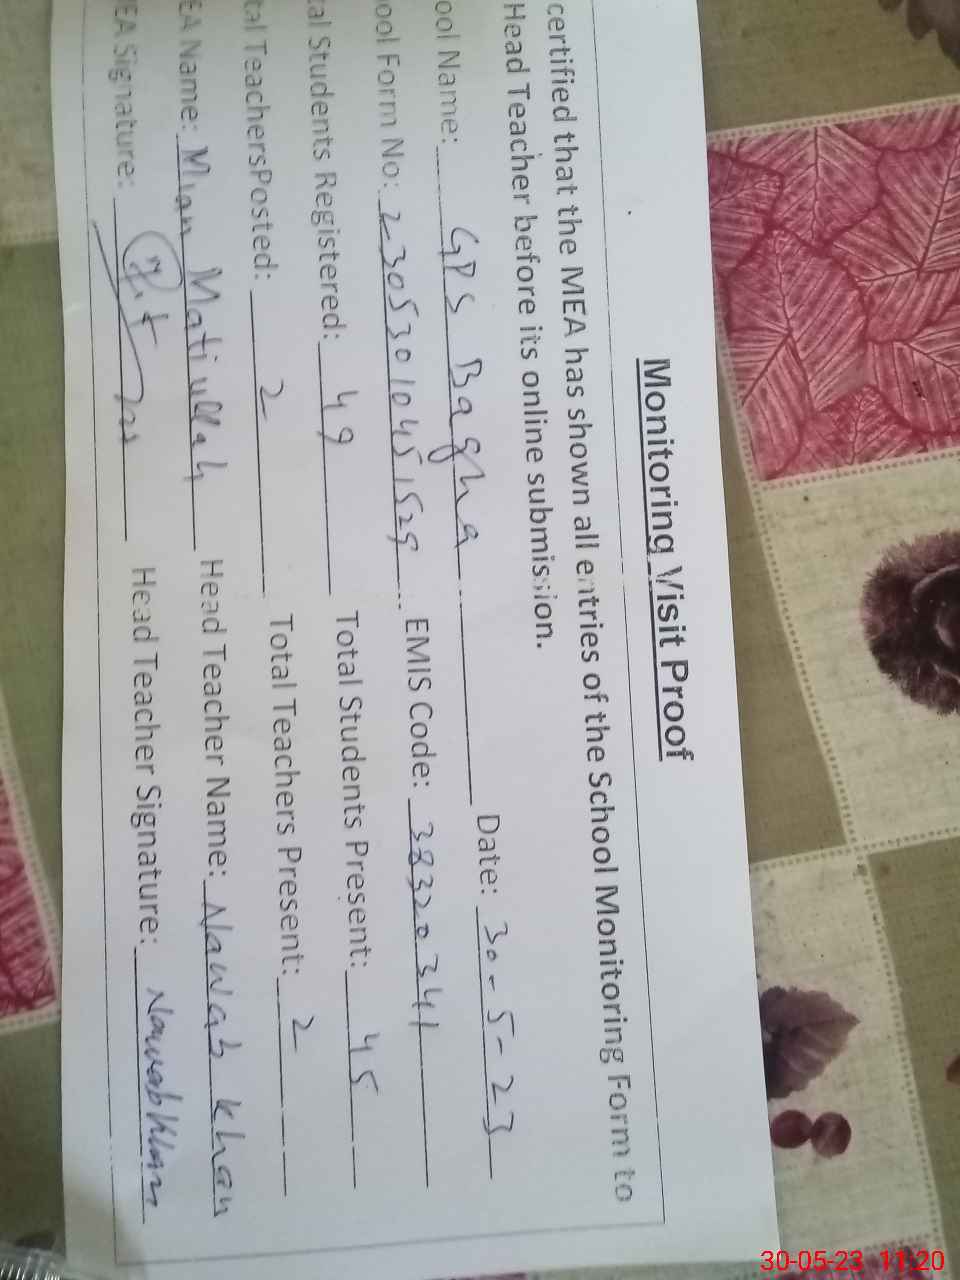 Monitoring Visit Proof
certified that the MEA has shown all entries of the School Monitoring Form to
Head Teacher before its online submission.
ool Name: GPS Bagha Date: 30-5-23
ool Form No: 23053010451529 EMIS Code: 38320341
tal Students Registered: 49 Total Students Present: 45
tal TeachersPosted: 2 Total Teachers Present: 2
EA Name: Mian Matiullah Head Teacher Name: Nawab Khan
EA Signature: Head Teacher Signature: Nawab Khan
30-05-23 11:20